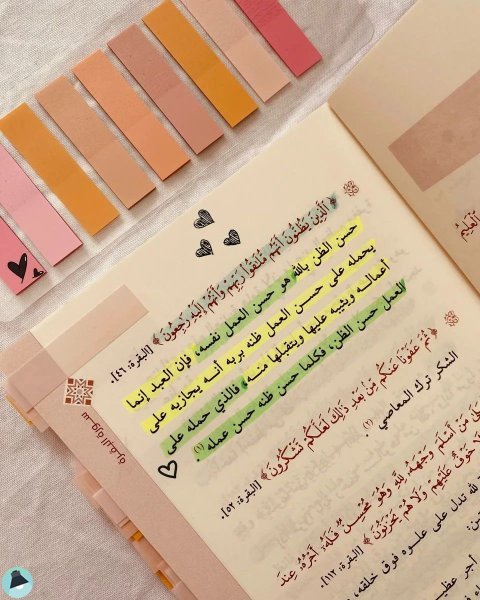 ﴿ الَّذِينَ يَظُنُّونَ أَنَّهُم مُّلَاقُوا رَبِّهِمْ وَأَنَّهُمْ إِلَيْهِ رَاجِعُونَ ﴾ [البقرة: ٤٦].
حسن الظن بالله هو حسن العمل نفسه، فإن العبد إنما
يحمله على حسن العمل ظنه بربه أنه يجازيه على
أعماله ويثيبه عليها ويتقبلها منه، فالذي حمله على
العمل حسن الظن، فكلما حسن ظنه حسن عمله (١).
﴿ ثُمَّ عَفَوْنَا عَنكُم مِّن بَعْدِ ذَٰلِكَ لَعَلَّكُمْ تَشْكُرُونَ ﴾ [البقرة: ٥٢].
الشكر ترك المعاصي (٢).
مَنْ أَسْلَمَ وَجْهَهُ لِلَّهِ وَهُوَ مُحْسِنٌ فَلَهُ أَجْرُهُ عِندَ
خَوْفٌ عَلَيْهِمْ وَلَا هُمْ يَحْزَنُونَ ﴾ [البقرة: ١١٢].
لله تدل على علوه فوق خلقه،
أجر
سورة البقرة